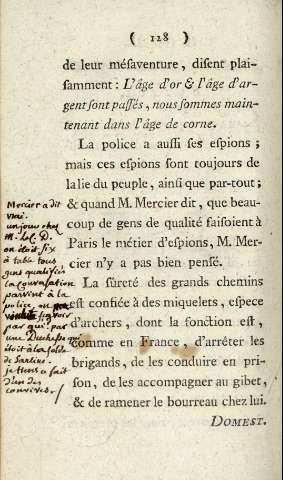 ( 128 )
de leur mésaventure, disent plai-
samment : L'âge d'or & l'âge d'ar-
gent sont passés, nous sommes main-
tenant dans l'âge de corne.
La police a aussi ses espions ;
mais ces espions sont toujours de
lalie du peuple, ainsi que par-tout ;
& quand M. Mercier dit, que beau-
coup de gens de qualité faisoient à
Paris le métier d'espions, M. Mer-
cier n'y a pas bien pensé.
La sûreté des grands chemins
est confiée à des miquelets, espece
d'archers, dont la fonction est,
comme en France, d'arrêter les
brigands, de les conduire en pri-
son, de les accompagner au gibet,
& de ramener le bourreau chez lui.
DOMEST.
Mercier a dit
vrai.
un jour chez
M. D.
on étoit six
à table tous
gens qualifiés
la conversation
parvint à la
police on
savoir
par qui : par
une Duchesse qui
étoit à la solde
de Sartine.
je tiens ce fait
d'un des
convives.